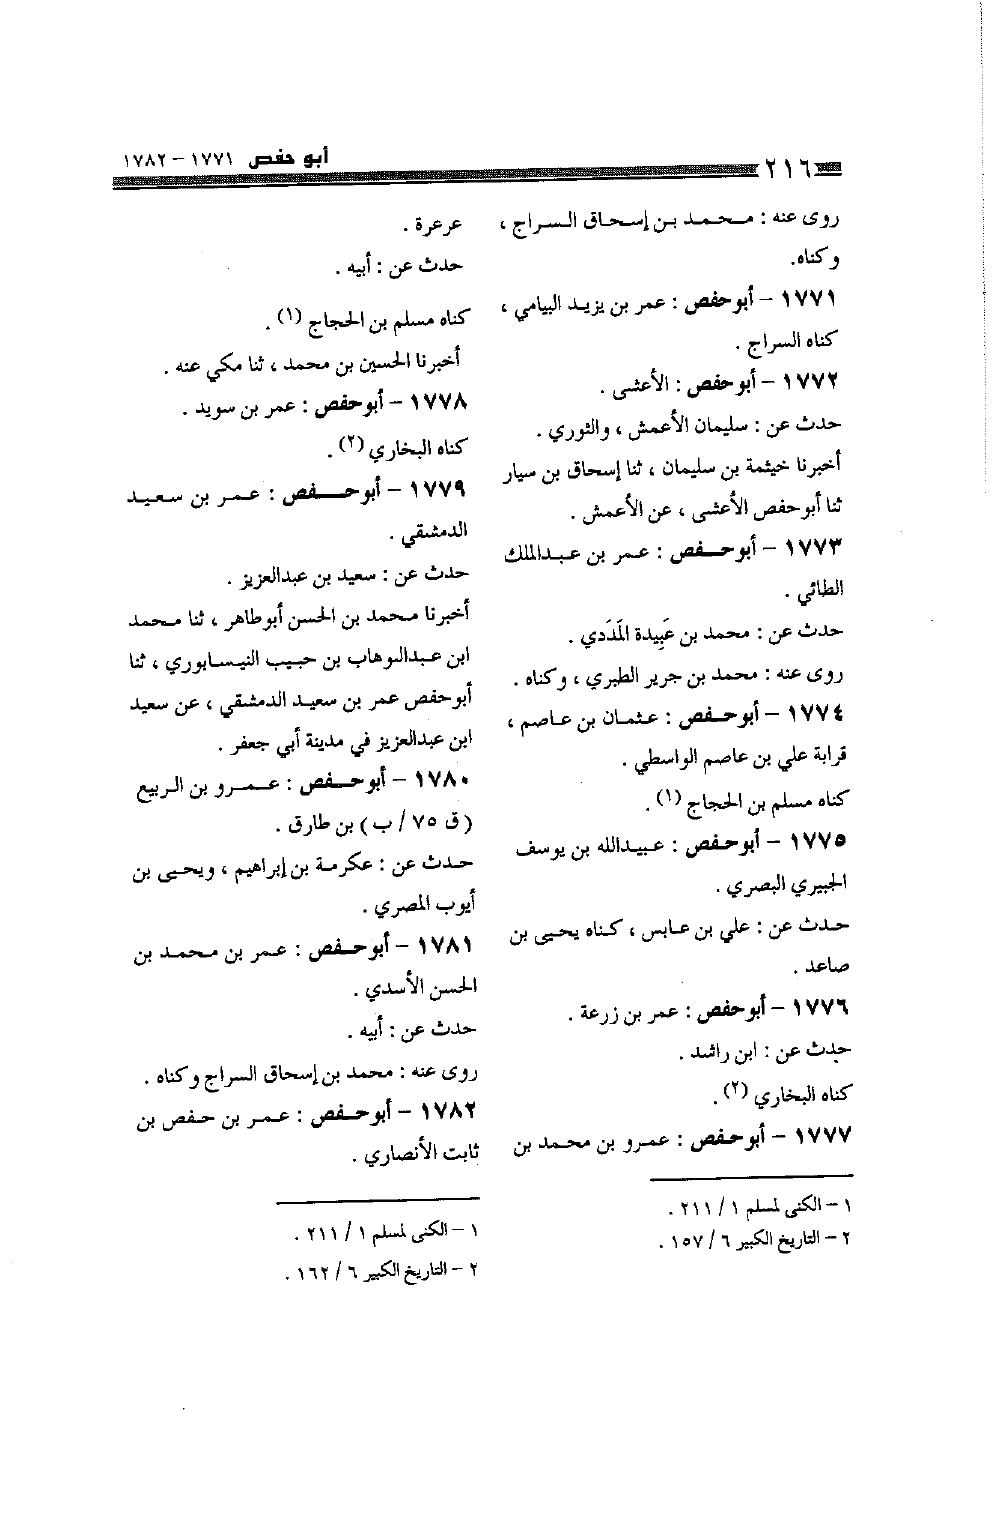 ٢١٦
أبو حفص ١٧٧١ - ١٧٨٢
روى عنه : محمد بن إسحاق السراج ،
وكناه.
١٧٧١ - أبو حفص : عمر بن يزيد اليامي ،
كناه السراج .
١٧٧٢ - أبو حفص : الأعشى .
حدث عن : سليمان الأعمش ، والثوري .
أخبرنا خيثمة بن سليمان ، ثنا إسحاق بن سيار
ثنا أبو حفص الأعشى ، عن الأعمش .
١٧٧٣ - أبو حفص : عمر بن عبدالملك
الطائي .
حدث عن : محمد بن عَبِيدة المَدَدي .
روى عنه : محمد بن جرير الطبري ، وكناه .
١٧٧٤ - أبو حفص : عثمان بن عاصم ،
قرابة علي بن عاصم الواسطي .
كناه مسلم بن الحجاج (١) .
١٧٧٥ - أبو حفص : عبيدالله بن يوسف
الجبيري البصري .
حدث عن : علي بن عابس ، كناه يحيى بن
صاعد .
١٧٧٦ - أبو حفص : عمر بن زرعة .
حدث عن : ابن راشد .
كناه البخاري (٢) .
١٧٧٧ - أبو حفص : عمرو بن محمد بن
١ - الكنى لمسلم ١ / ٢١١ .
٢ - التاريخ الكبير ٦ / ١٥٧ .
عرعرة .
حدث عن : أبيه .
كناه مسلم بن الحجاج (١) .
أخبرنا الحسين بن محمد ، ثنا مكي عنه .
١٧٧٨ - أبو حفص : عمر بن سويد .
كناه البخاري (٢) .
١٧٧٩ - أبو حفص : عمر بن سعيد
الدمشقي .
حدث عن : سعيد بن عبدالعزيز .
أخبرنا محمد بن الحسن أبو طاهر ، ثنا محمد
ابن عبدالوهاب بن حبيب النيسابوري ، ثنا
أبو حفص عمر بن سعيد الدمشقي ، عن سعيد
ابن عبدالعزيز في مدينة أبي جعفر .
١٧٨٠ - أبو حفص : عمرو بن الربيع
(ق ٧٥ / ب) بن طارق .
حدث عن : عكرمة بن إبراهيم ، ويحيى بن
أيوب المصري .
١٧٨١ - أبو حفص : عمر بن محمد بن
الحسن الأسدي .
حدث عن : أبيه .
روى عنه : محمد بن إسحاق السراج وكناه .
١٧٨٢ - أبو حفص : عمر بن حفص بن
ثابت الأنصاري .
١ - الكنى لمسلم ١ / ٢١١ .
٢ - التاريخ الكبير ٦ / ١٦٢ .